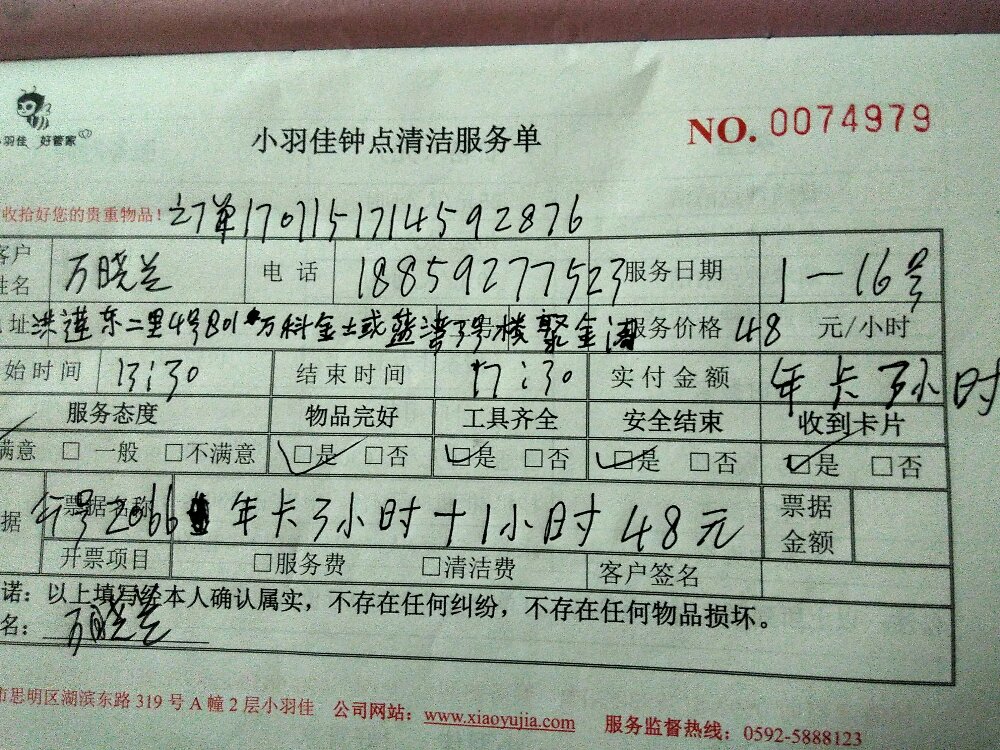 小羽佳 好管家
小羽佳钟点清洁服务单
NO. 0074979
收拾好您的贵重物品！订单1701151714592876
客户姓名 万晓兰 电话 18859277523 服务日期 1—16号
址 洪莲东二里4号801 万科金土或蓝湾3号楼聚金湾 服务价格 48 元/小时
始时间 13:30 结束时间 17:30 实付金额 年卡3小时
服务态度 物品完好 工具齐全 安全结束 收到卡片
满意 □ 一般 □不满意 □是 □否 □是 □否 □是 □否 □是 □否
据 票据名称 号2066 年卡3小时+1小时48元 票据金额
开票项目 □服务费 □清洁费 客户签名
诺：以上填写经本人确认属实，不存在任何纠纷，不存在任何物品损坏。
名：万晓兰
市思明区湖滨东路 319 号 A 幢 2 层小羽佳 公司网站：www.xiaoyujia.com 服务监督热线：0592-5888123